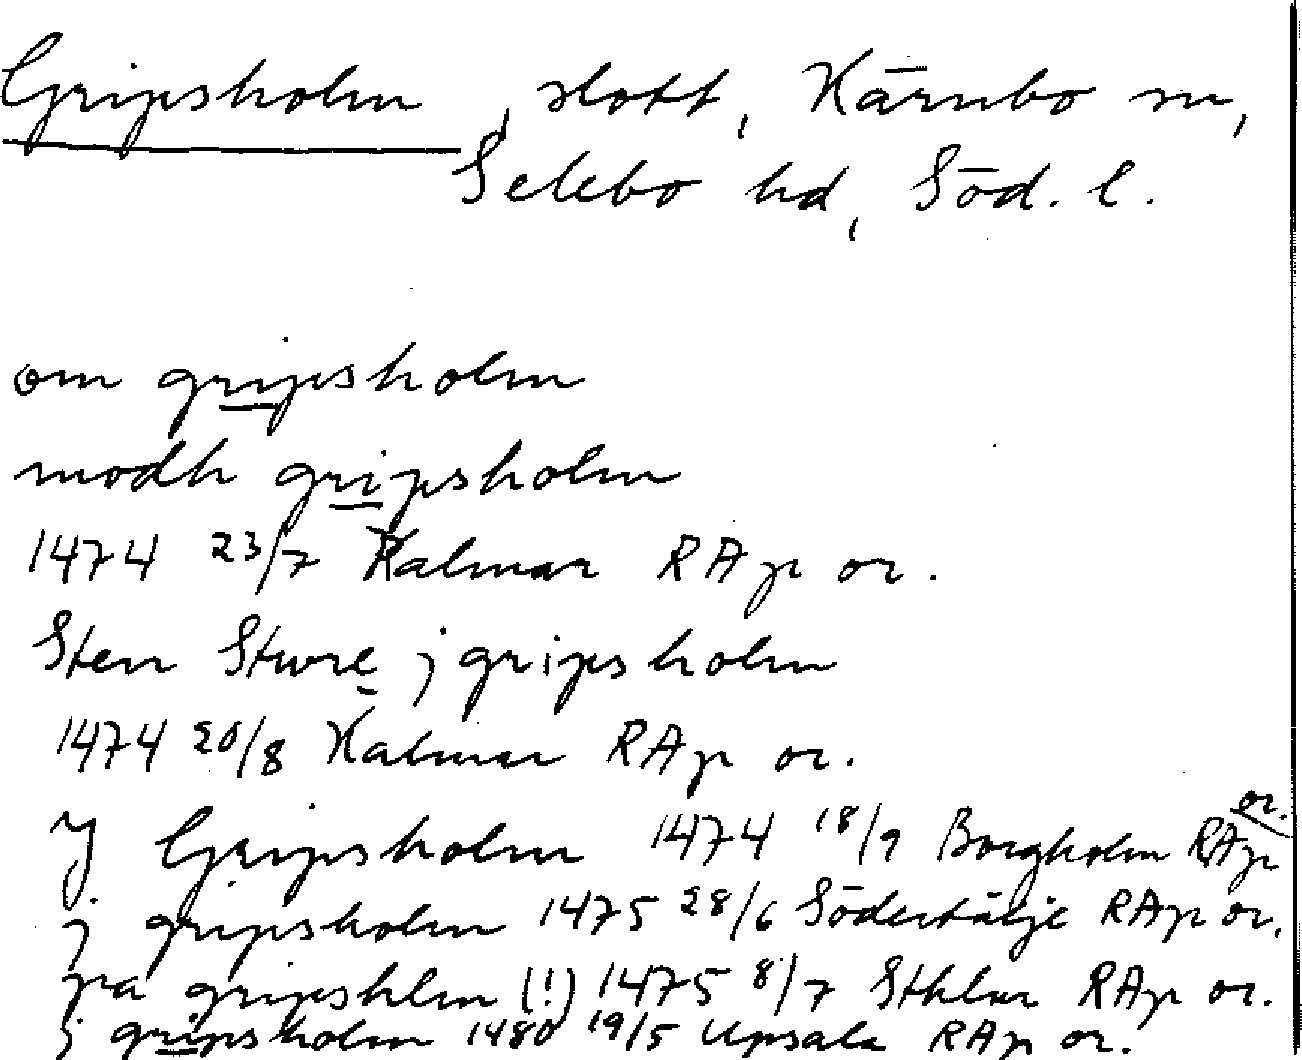 Gripsholm, slott, Kärnbo sn,
Selebo hd, Söd. l.
om gripsholm
modh gripsholm
1474 23/7 Kalmar RAp or.
Sten Sture j gripsholm
1474 20/8 Kalmar RAp or.
J Gripsholm 1474 18/9 Borgholm RAp or.
j gripsholm 1475 28/6 Södertälje RAp or.
pa gripshlm (!) 1475 8/7 Sthlm RAp or.
j gripsholm 1480 19/5 Upsala RAp or.